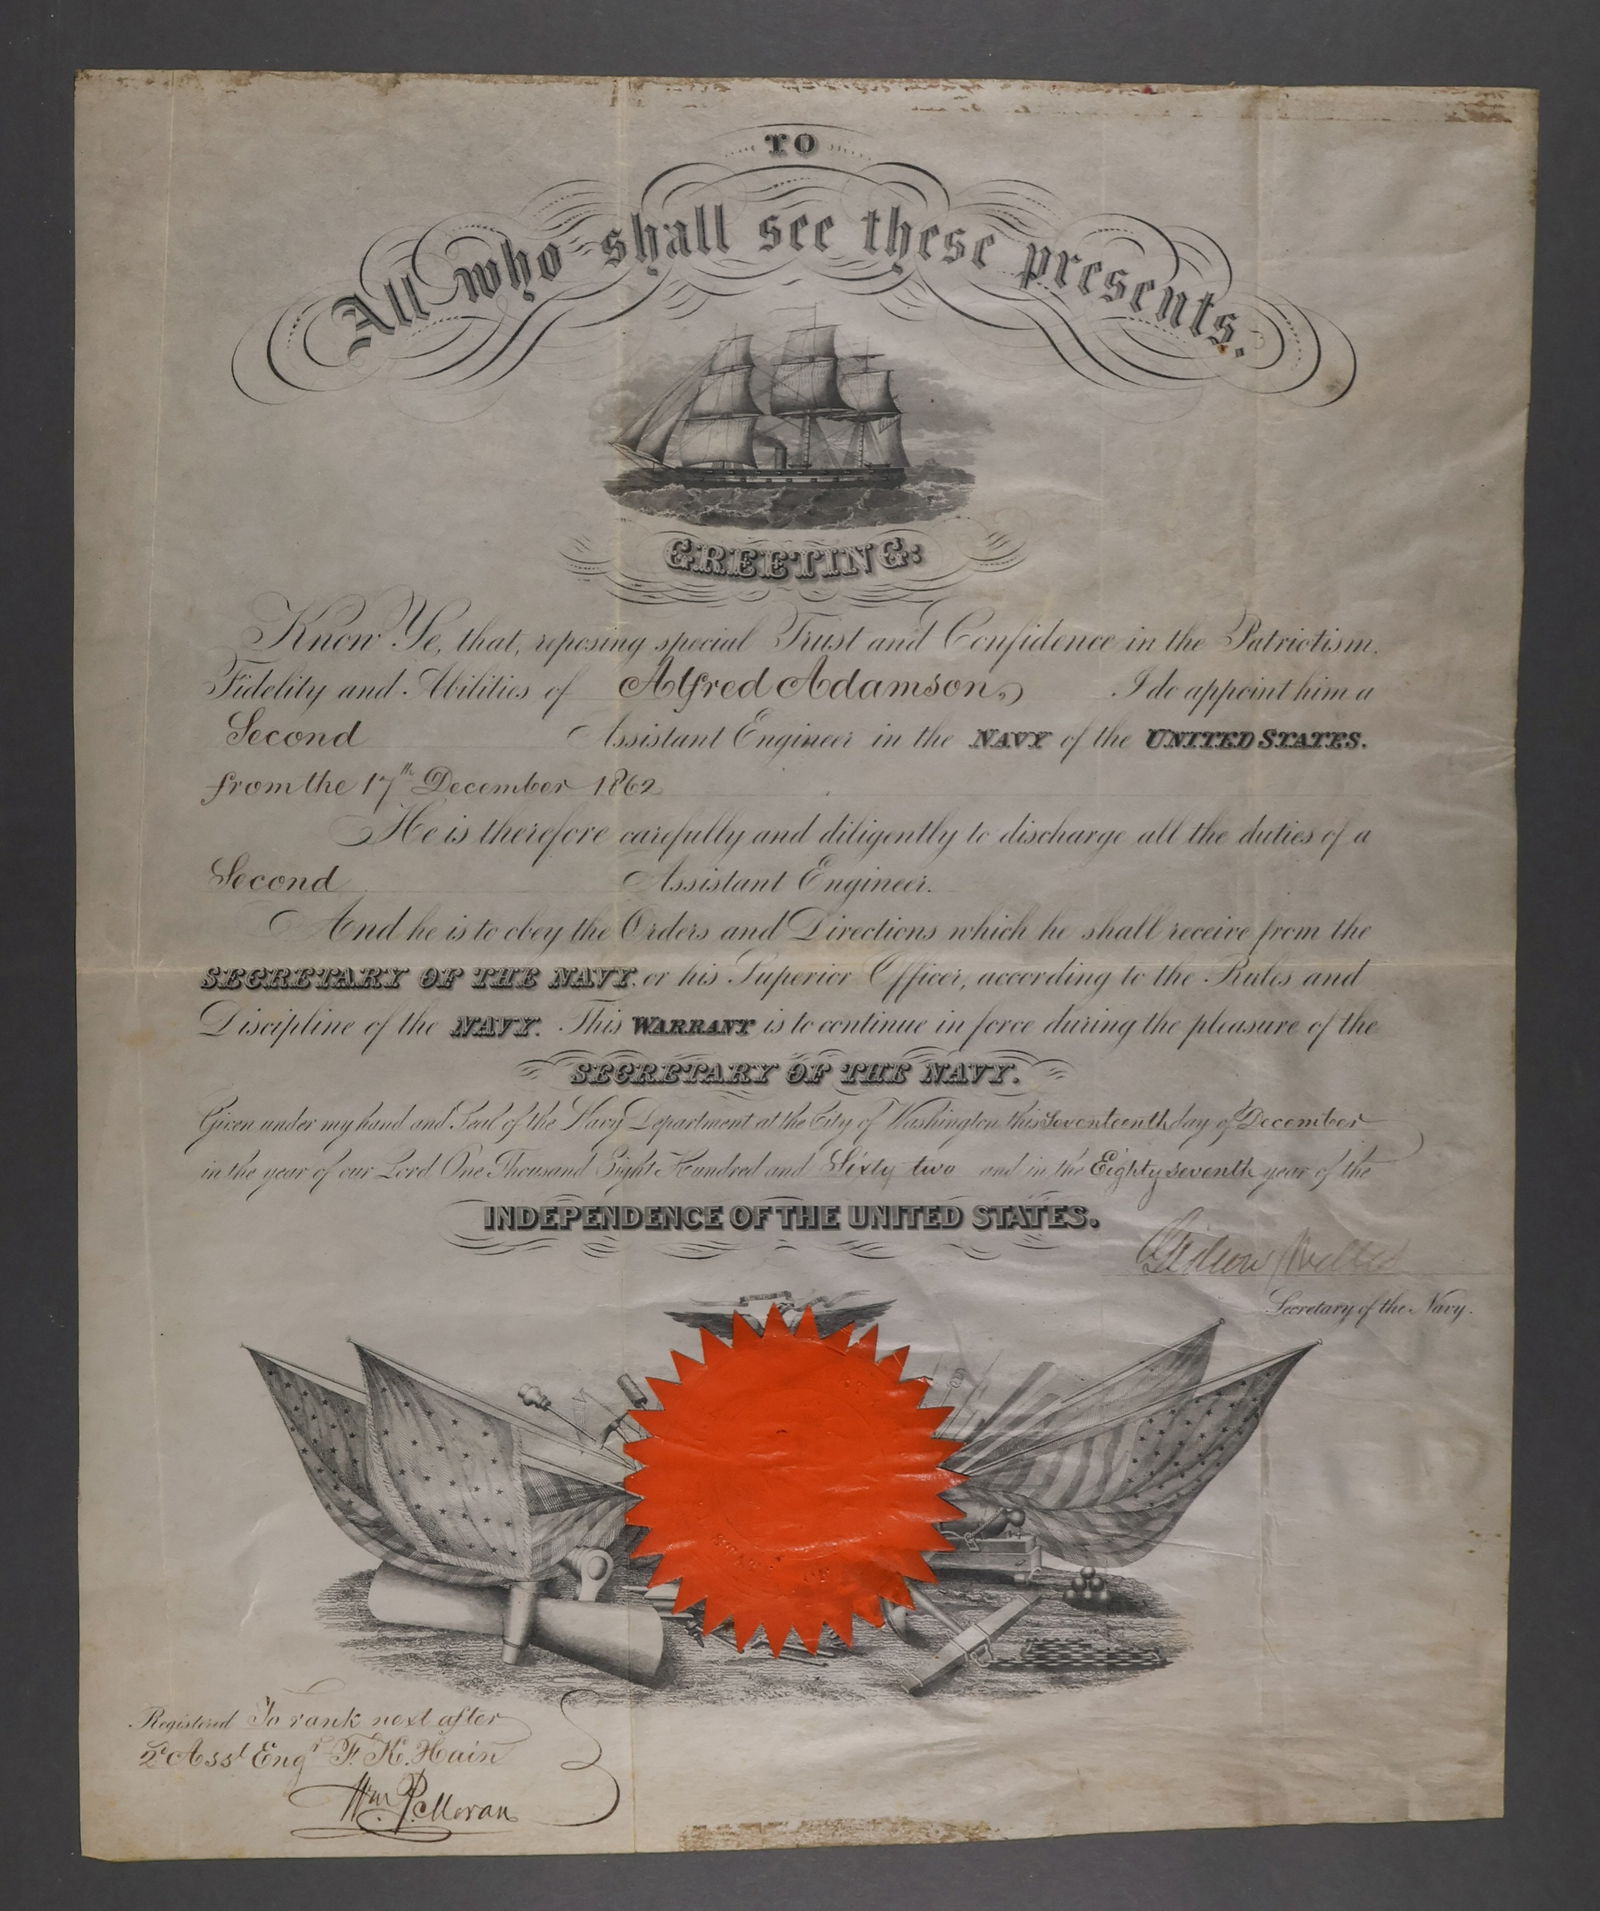 TO
All who shall see these presents.
GREETING:
Know Ye, that, reposing special Trust and Confidence in the Patriotism,
Fidelity and Abilities of Alfred Adamson, I do appoint him a
Second Assistant Engineer in the NAVY of the UNITED STATES.
from the 17th December 1862
He is therefore carefully and diligently to discharge all the duties of a
Second Assistant Engineer.
And he is to obey the Orders and Directions which he shall receive from the
SECRETARY OF THE NAVY. or his Superior Officer, according to the Rules and
Discipline of the NAVY. This WARRANT is to continue in force during the pleasure of the
SECRETARY OF THE NAVY.
Given under my hand and Seal of the Navy Department at the City of Washington this Seventeenth day of December
in the year of our Lord One Thousand Eight Hundred and Sixty two and in the Eighty seventh year of the
INDEPENDENCE OF THE UNITED STATES.
Gideon Welles
Secretary of the Navy.
Registered To rank next after
2d Asst Engr F. K. Hain
Wm P. Moran